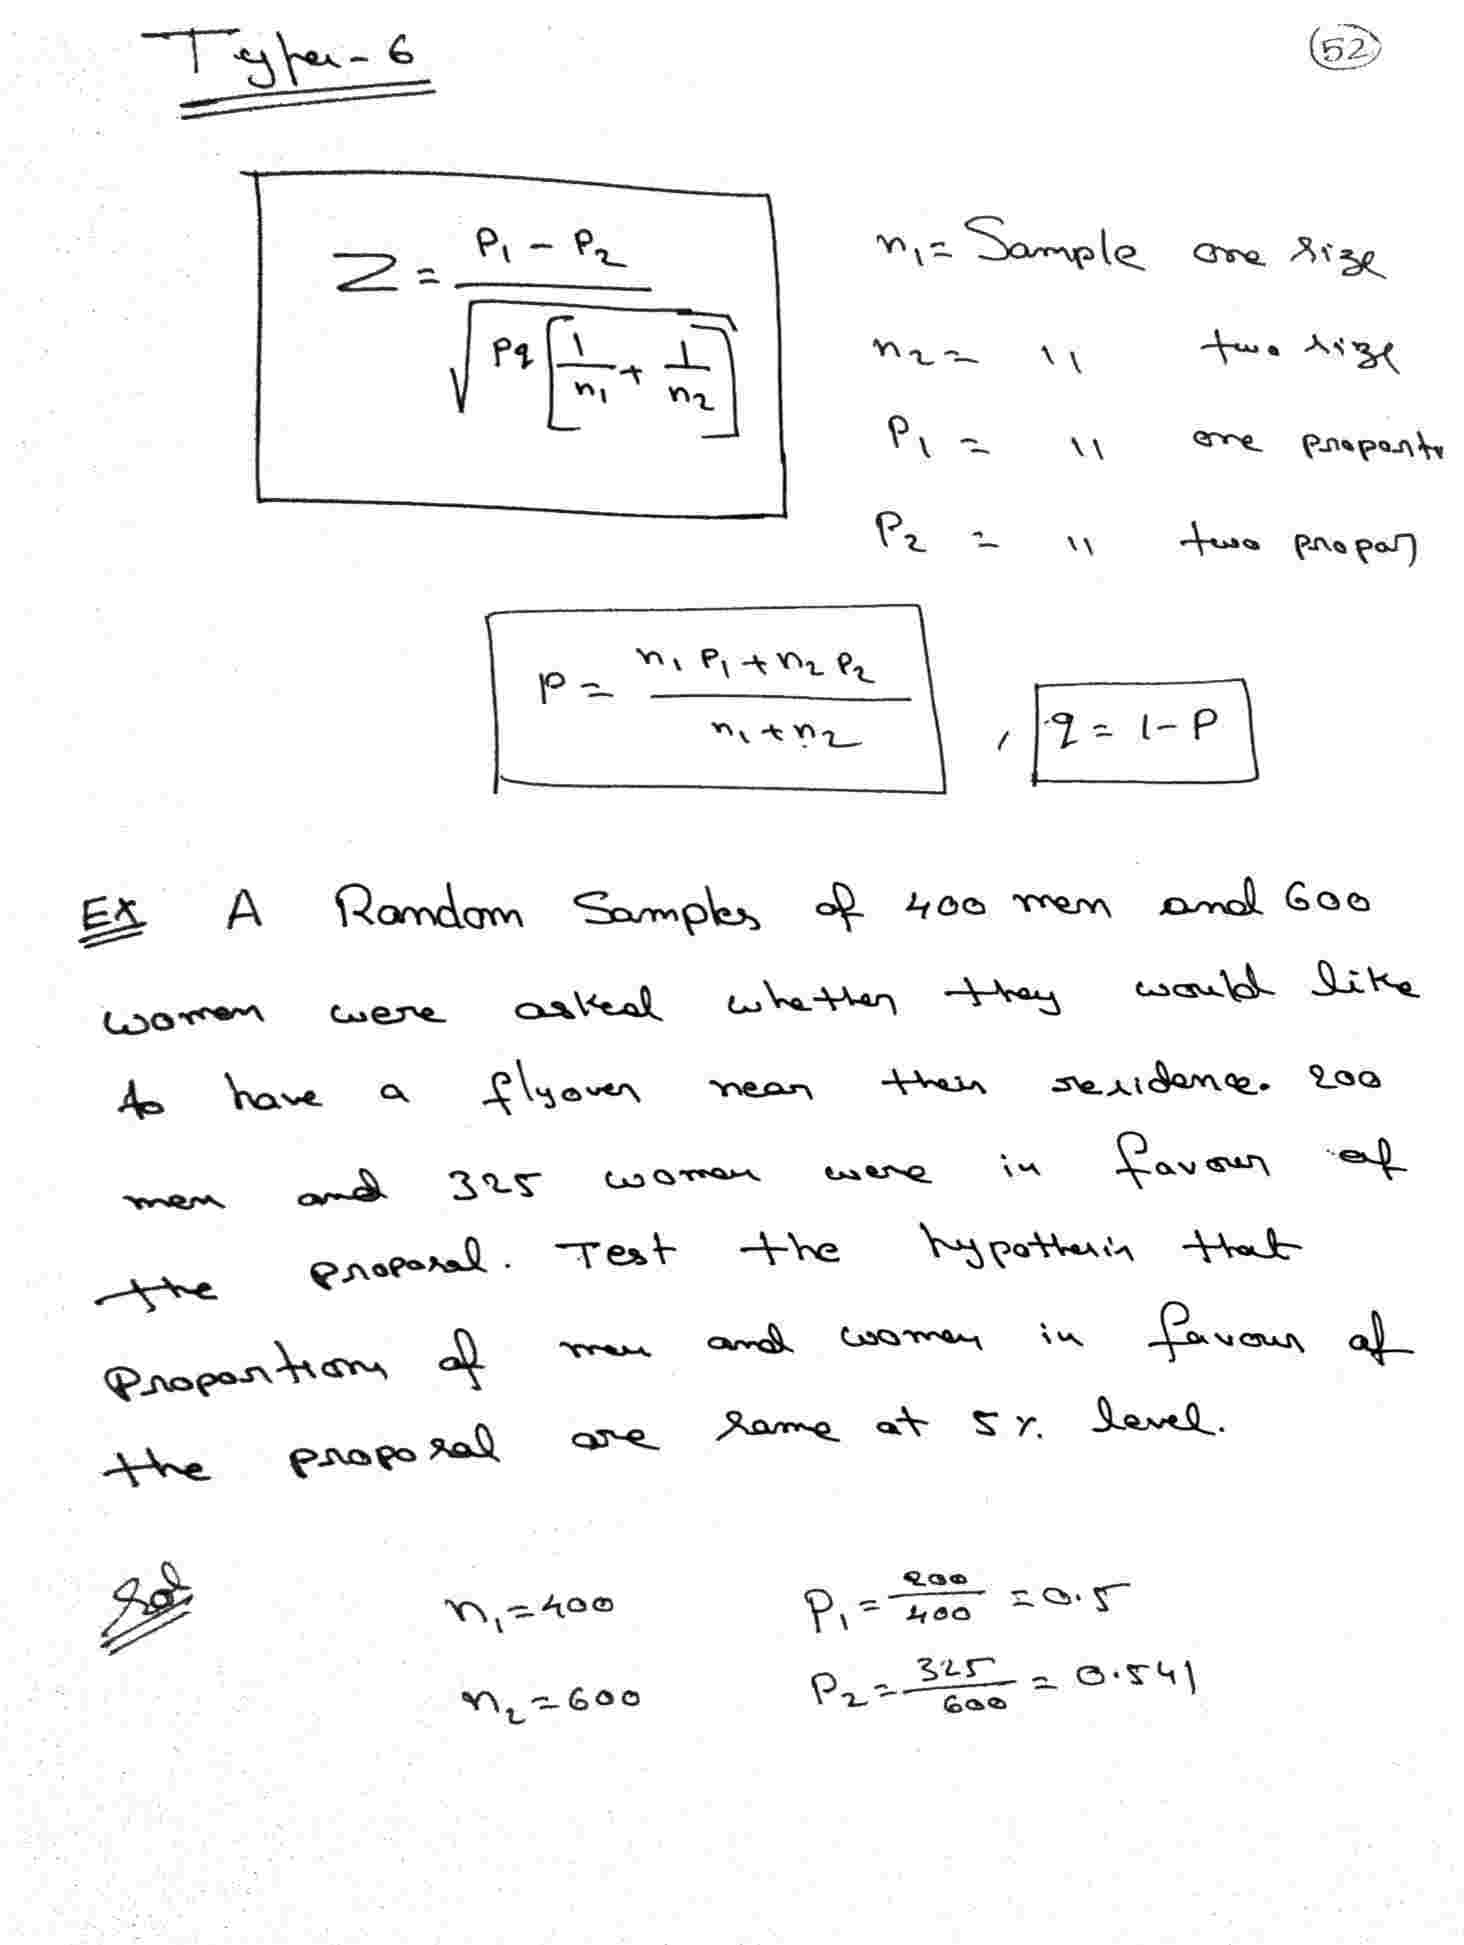 Type-6
52
Z = P1 - P2 / √ pq [ 1/n1 + 1/n2 ]
n1 = Sample one size
n2 = " two size
P1 = " one proport
P2 = " two propor
P = n1 P1 + n2 P2 / n1 + n2 , q = 1 - P
Ex A Random Samples of 400 men and 600
women were asked whether they would like
to have a flyover near their residence. 200
men and 325 women were in favour of
the proposal. Test the hypothesis that
Proportions of men and women in favour of
the proposal are same at 5% level.
Sol n1 = 400 P1 = 200/400 = 0.5
n2 = 600 P2 = 325/600 = 0.541